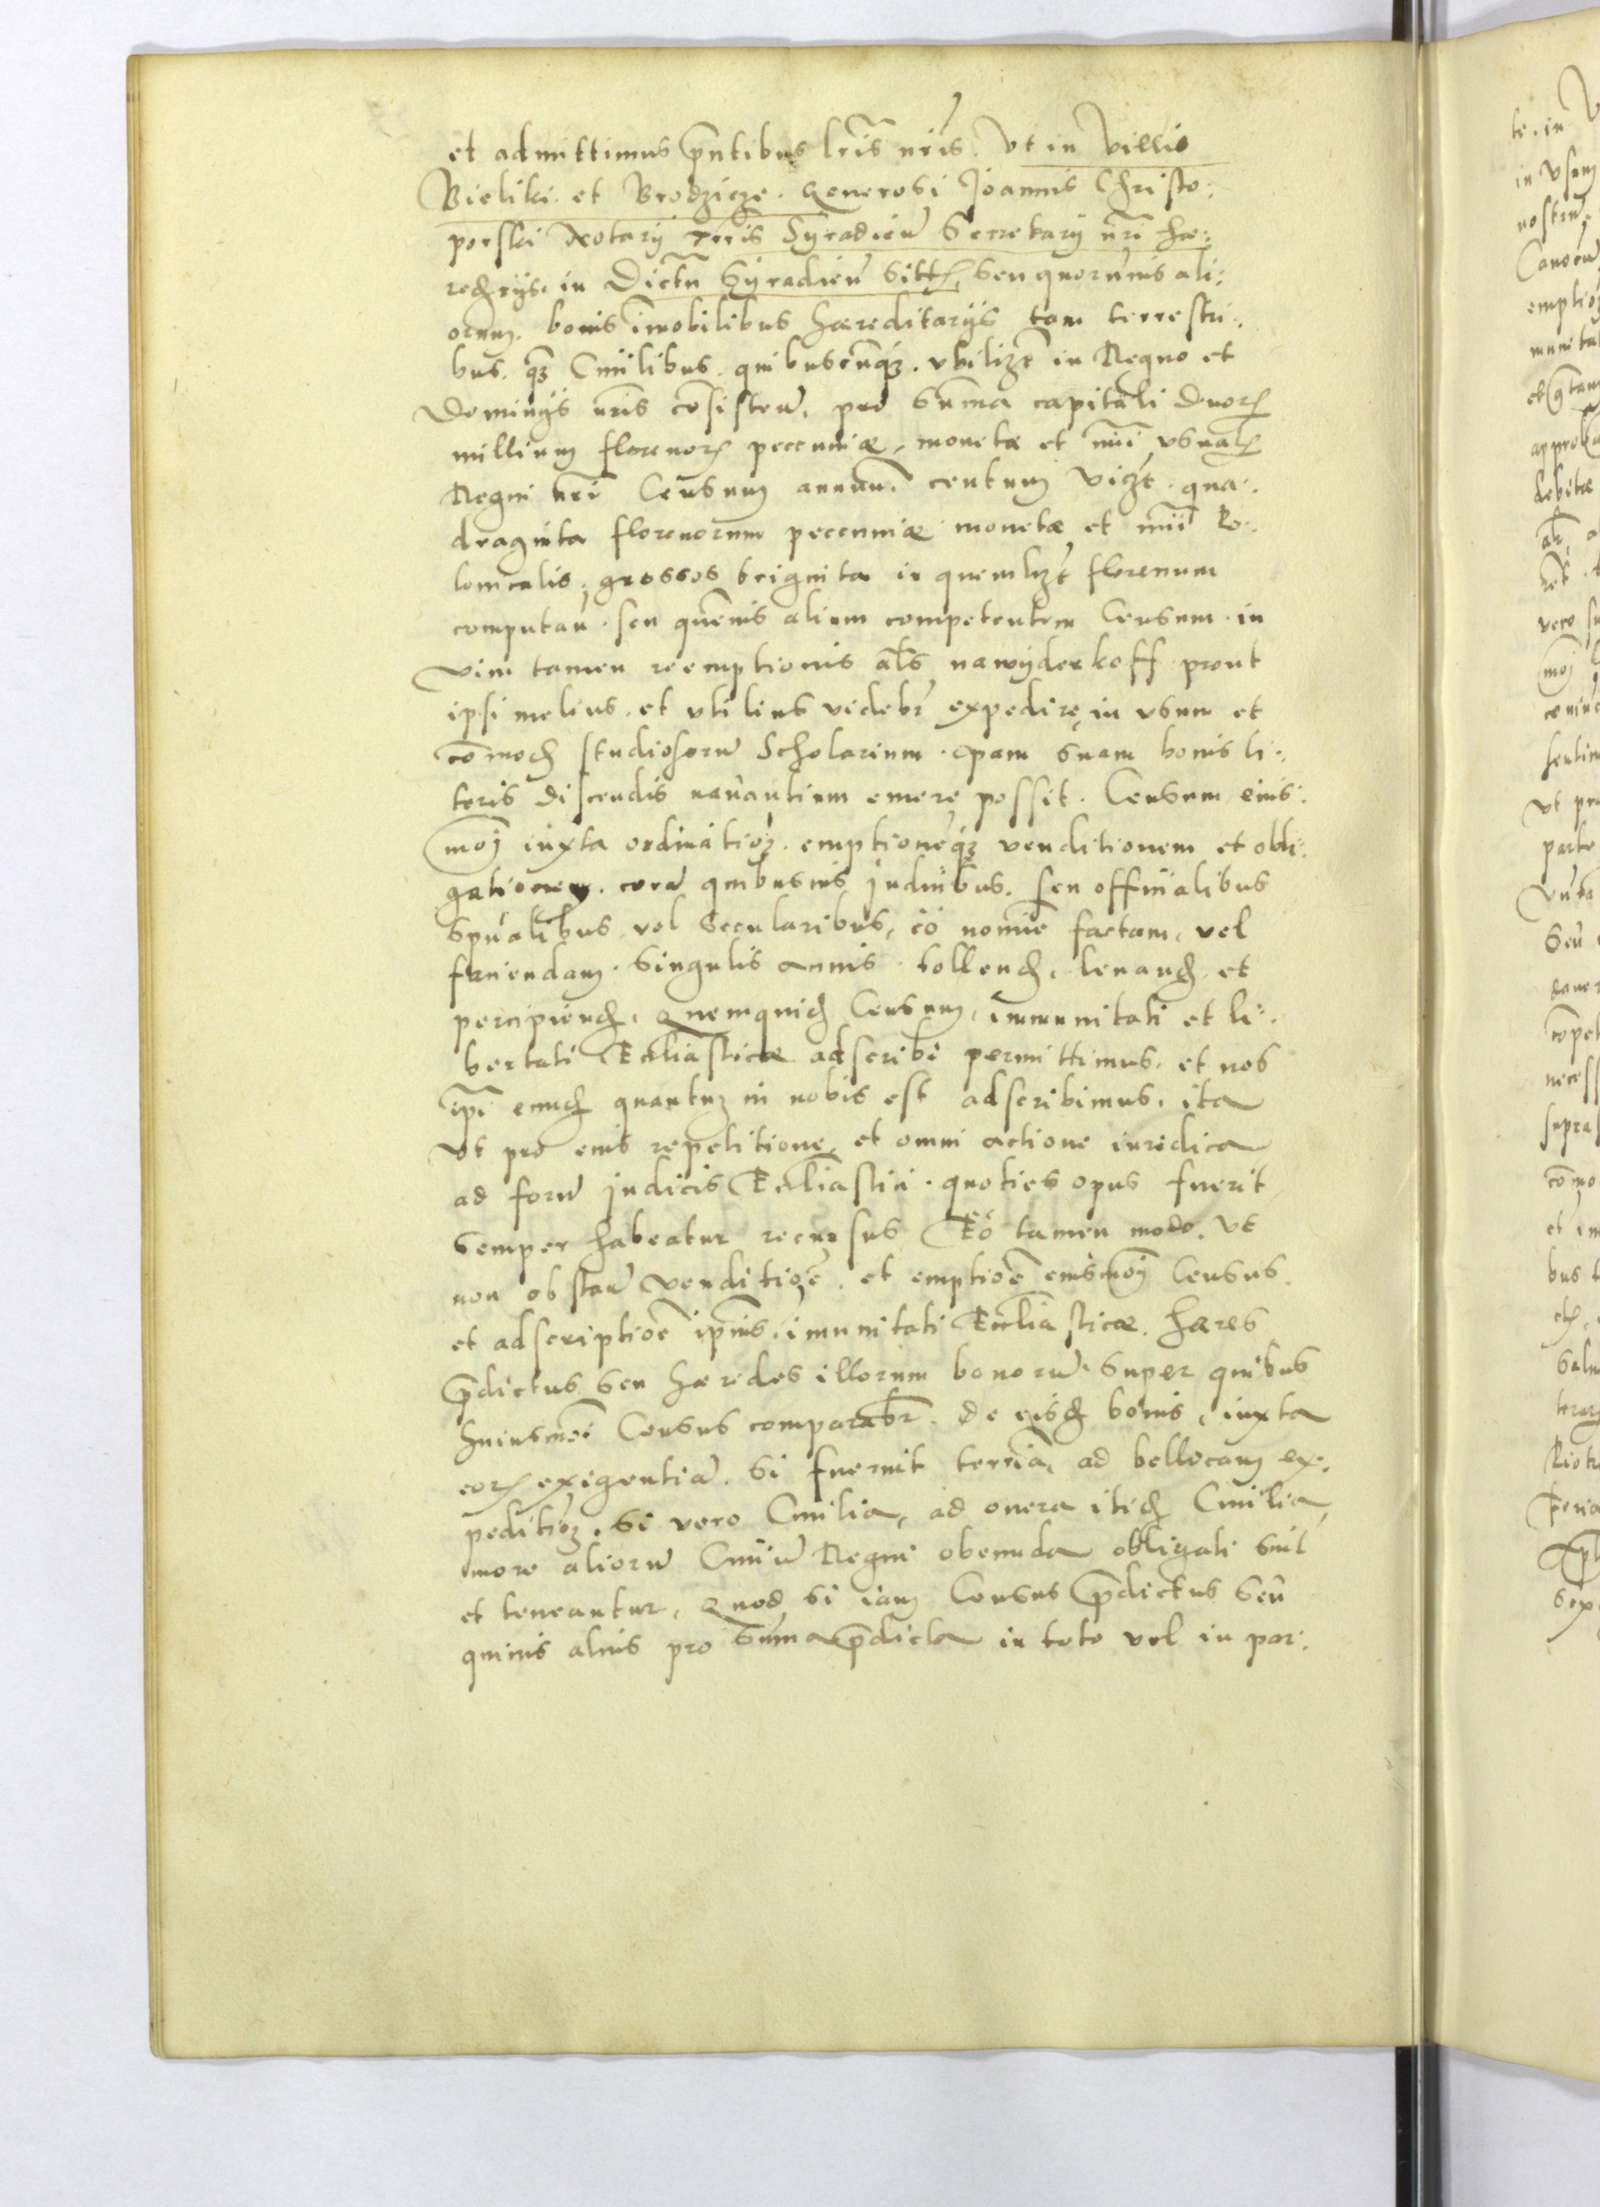 et admittimus p̄ntibus l̃ris nr̃is. Vt in Villis
Bieliki. et Brodzicze. Generosi Joannis Christo:
porski Notarij Tr̃ris Syradień Secretarij nr̃i hæ:
redꝫrijs. in Dictũ Syradień sittꝫ, seu quorũuis ali:
orum. bonis im̃obilibus hæreditarijs tam terrestri:
bus. qꝫ Ciuilibus. quibuscũqꝫ. vbilizt in Regno et
Dominijs nr̃is cõsisteñ. pro sum̃a capitali duorꝫ
millium florenorꝫ pecuniæ, monetæ et nũi vsualꝫ
Regni nr̃i Censum annuũ. centum vizt. qua:
draginta florenorum pecuniæ monetæ et nũi Po:
lonicalis, grossos triginta in quemlizt florenum
computań. seu quẽuis alium competentem Censum. in
vim tamen reemptionis al̃s nawyderkoff prout
ipsi melius. et vtilius videbr̃ expedire, in vsum et
cõmodꝫ studiosorũ Scholarium. opam suam bonis li:
teris discendis nauantium emere possit. Censum eius:
mõj iuxta ordinatiõꝫ. emptionẽqꝫ venditionem et obli:
gationem. corã quibusuis judicibus. seu officialibus
spũalibus vel secularibus, eõ nomiñe factam, vel
faciendam. singulis annis tollendꝫ, leuandꝫ et
percipiendꝫ. Quemquidꝫ Censum, immunitati et li:
bertati Eccl̃iasticæ adscribi permittimus. et nos
ip̃i eundꝫ quantum in nobis est adscribimus. ita
vt pro eius repetitione, et omni actione iuredica
ad forũ judicis Eccl̃iastici. quoties opus fuerit
semper habeatur recursus Eõ tamen modo. vt
non obstań venditiõe. et emptiõe eiusmõj Census.
et adscriptiõe ip̃ius. im̃unitati Eccl̃iasticæ. hæres
p̄dictus seu hæredes illorum bonorũ. super quibus
huiusmõi Census comparabr̃. de eisdꝫ bonis, iuxta
eorꝫ exigentiã. si fuerint terrr̃ia, ad bellicam ex:
peditiõꝫ. si vero Ciuilia, ad onera itidꝫ Ciuilia,
more aliorũ Ciuiũ Regni obeunda obligati sint
et teneantur, Quod si iam Census p̄dictus seu
quiuis alius pro sum̃a p̄dicta in toto vel in par: